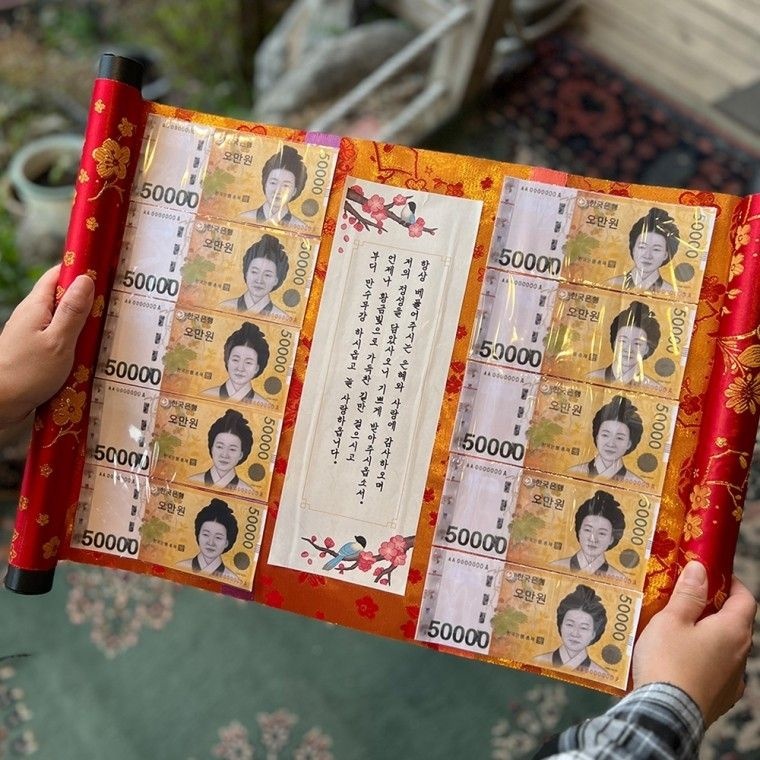 AA 0000000 A
한국은행
오만원
50000
50000
AA 0000000 A
한국은행
오만원
50000
50000
AA 0000000 A
한국은행
오만원
50000
50000
AA 0000000 A
한국은행
오만원
50000
50000
한국은행
오만원
50000
50000
항상 베풀어주시는 은혜와 사랑에 감사하오며
저의 정성을 담았사오니 기쁘게 받아주시옵소서.
언제나 황금빛으로 가득한 길만 걸으시고
부디 만수무강 하시옵고 늘 사랑하옵니다.
AA 0000000 A
한국은행
오만원
50000
50000
AA 0000000 A
한국은행
오만원
50000
50000
AA 0000000 A
한국은행
오만원
50000
50000
AA 0000000 A
한국은행
오만원
50000
50000
AA 0000000 A
한국은행
오만원
50000
50000